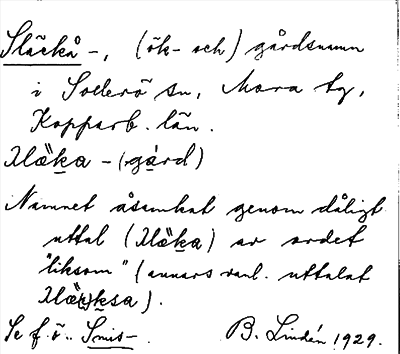 Släckå -, (ök- och) gårdsnamn
i Sollerö sn, Mora tg,
Kopparb. län.
Xläka - (gård)
Namnet åsamkat genom dåligt
uttal (Xläka) av ordet
"liksom" (annars vanl. uttalat
Xlä(k)ksa).
Se f.ö. Smis-. B. Lindén 1929.